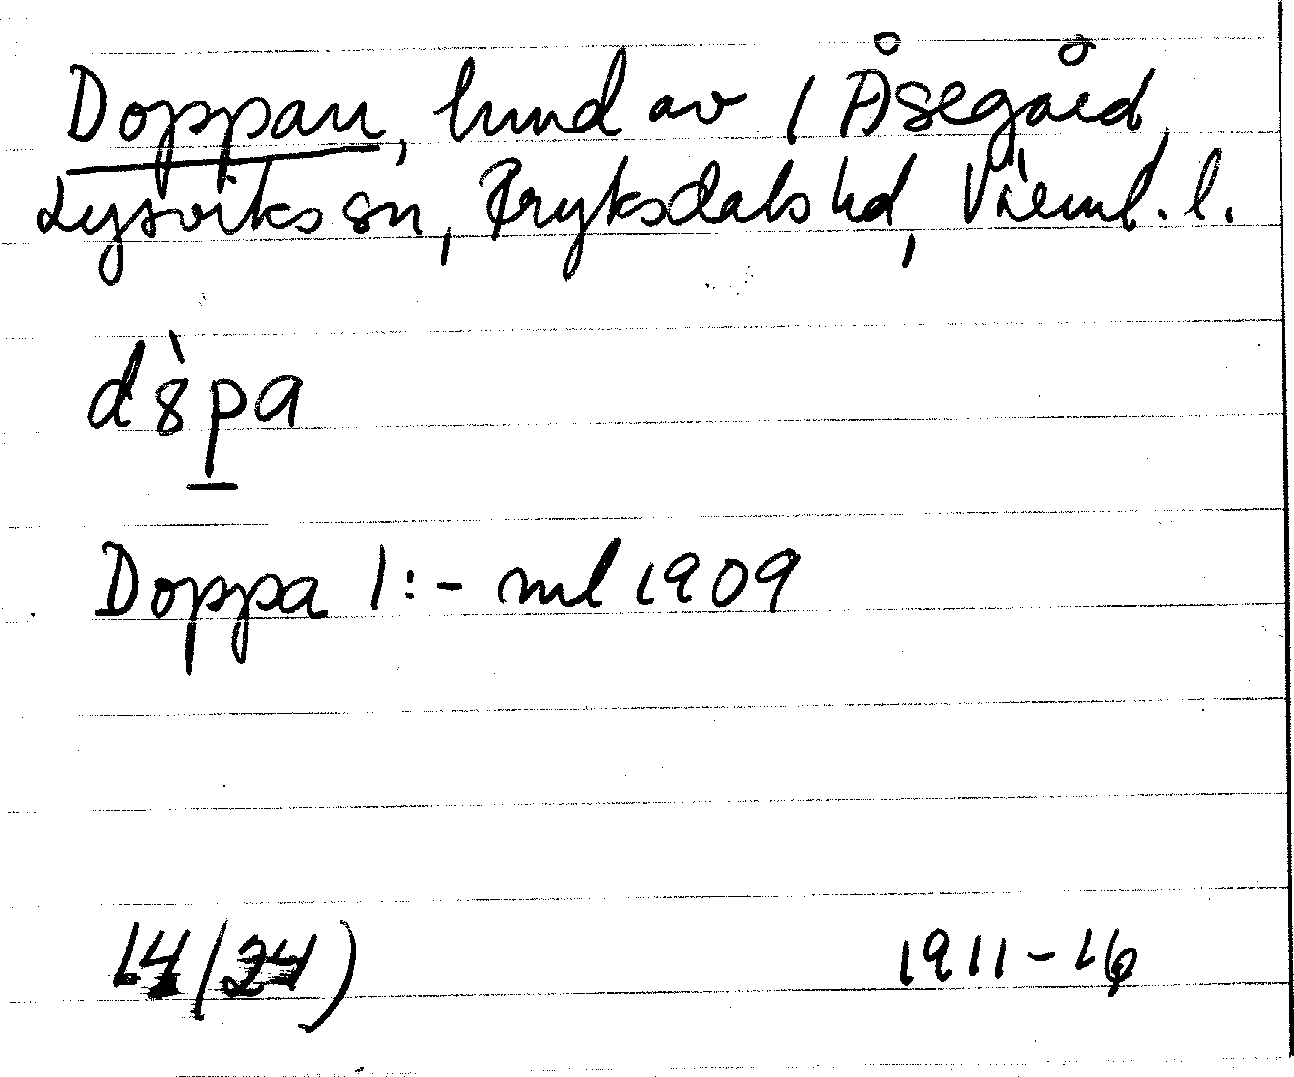 Doppan, hmd av 1 Åsegård,
Lysviks sn, Fryksdals hd, Värml. l.
dȣ̀pa
Doppa 1:- ml 1909
14/24)
1911-16